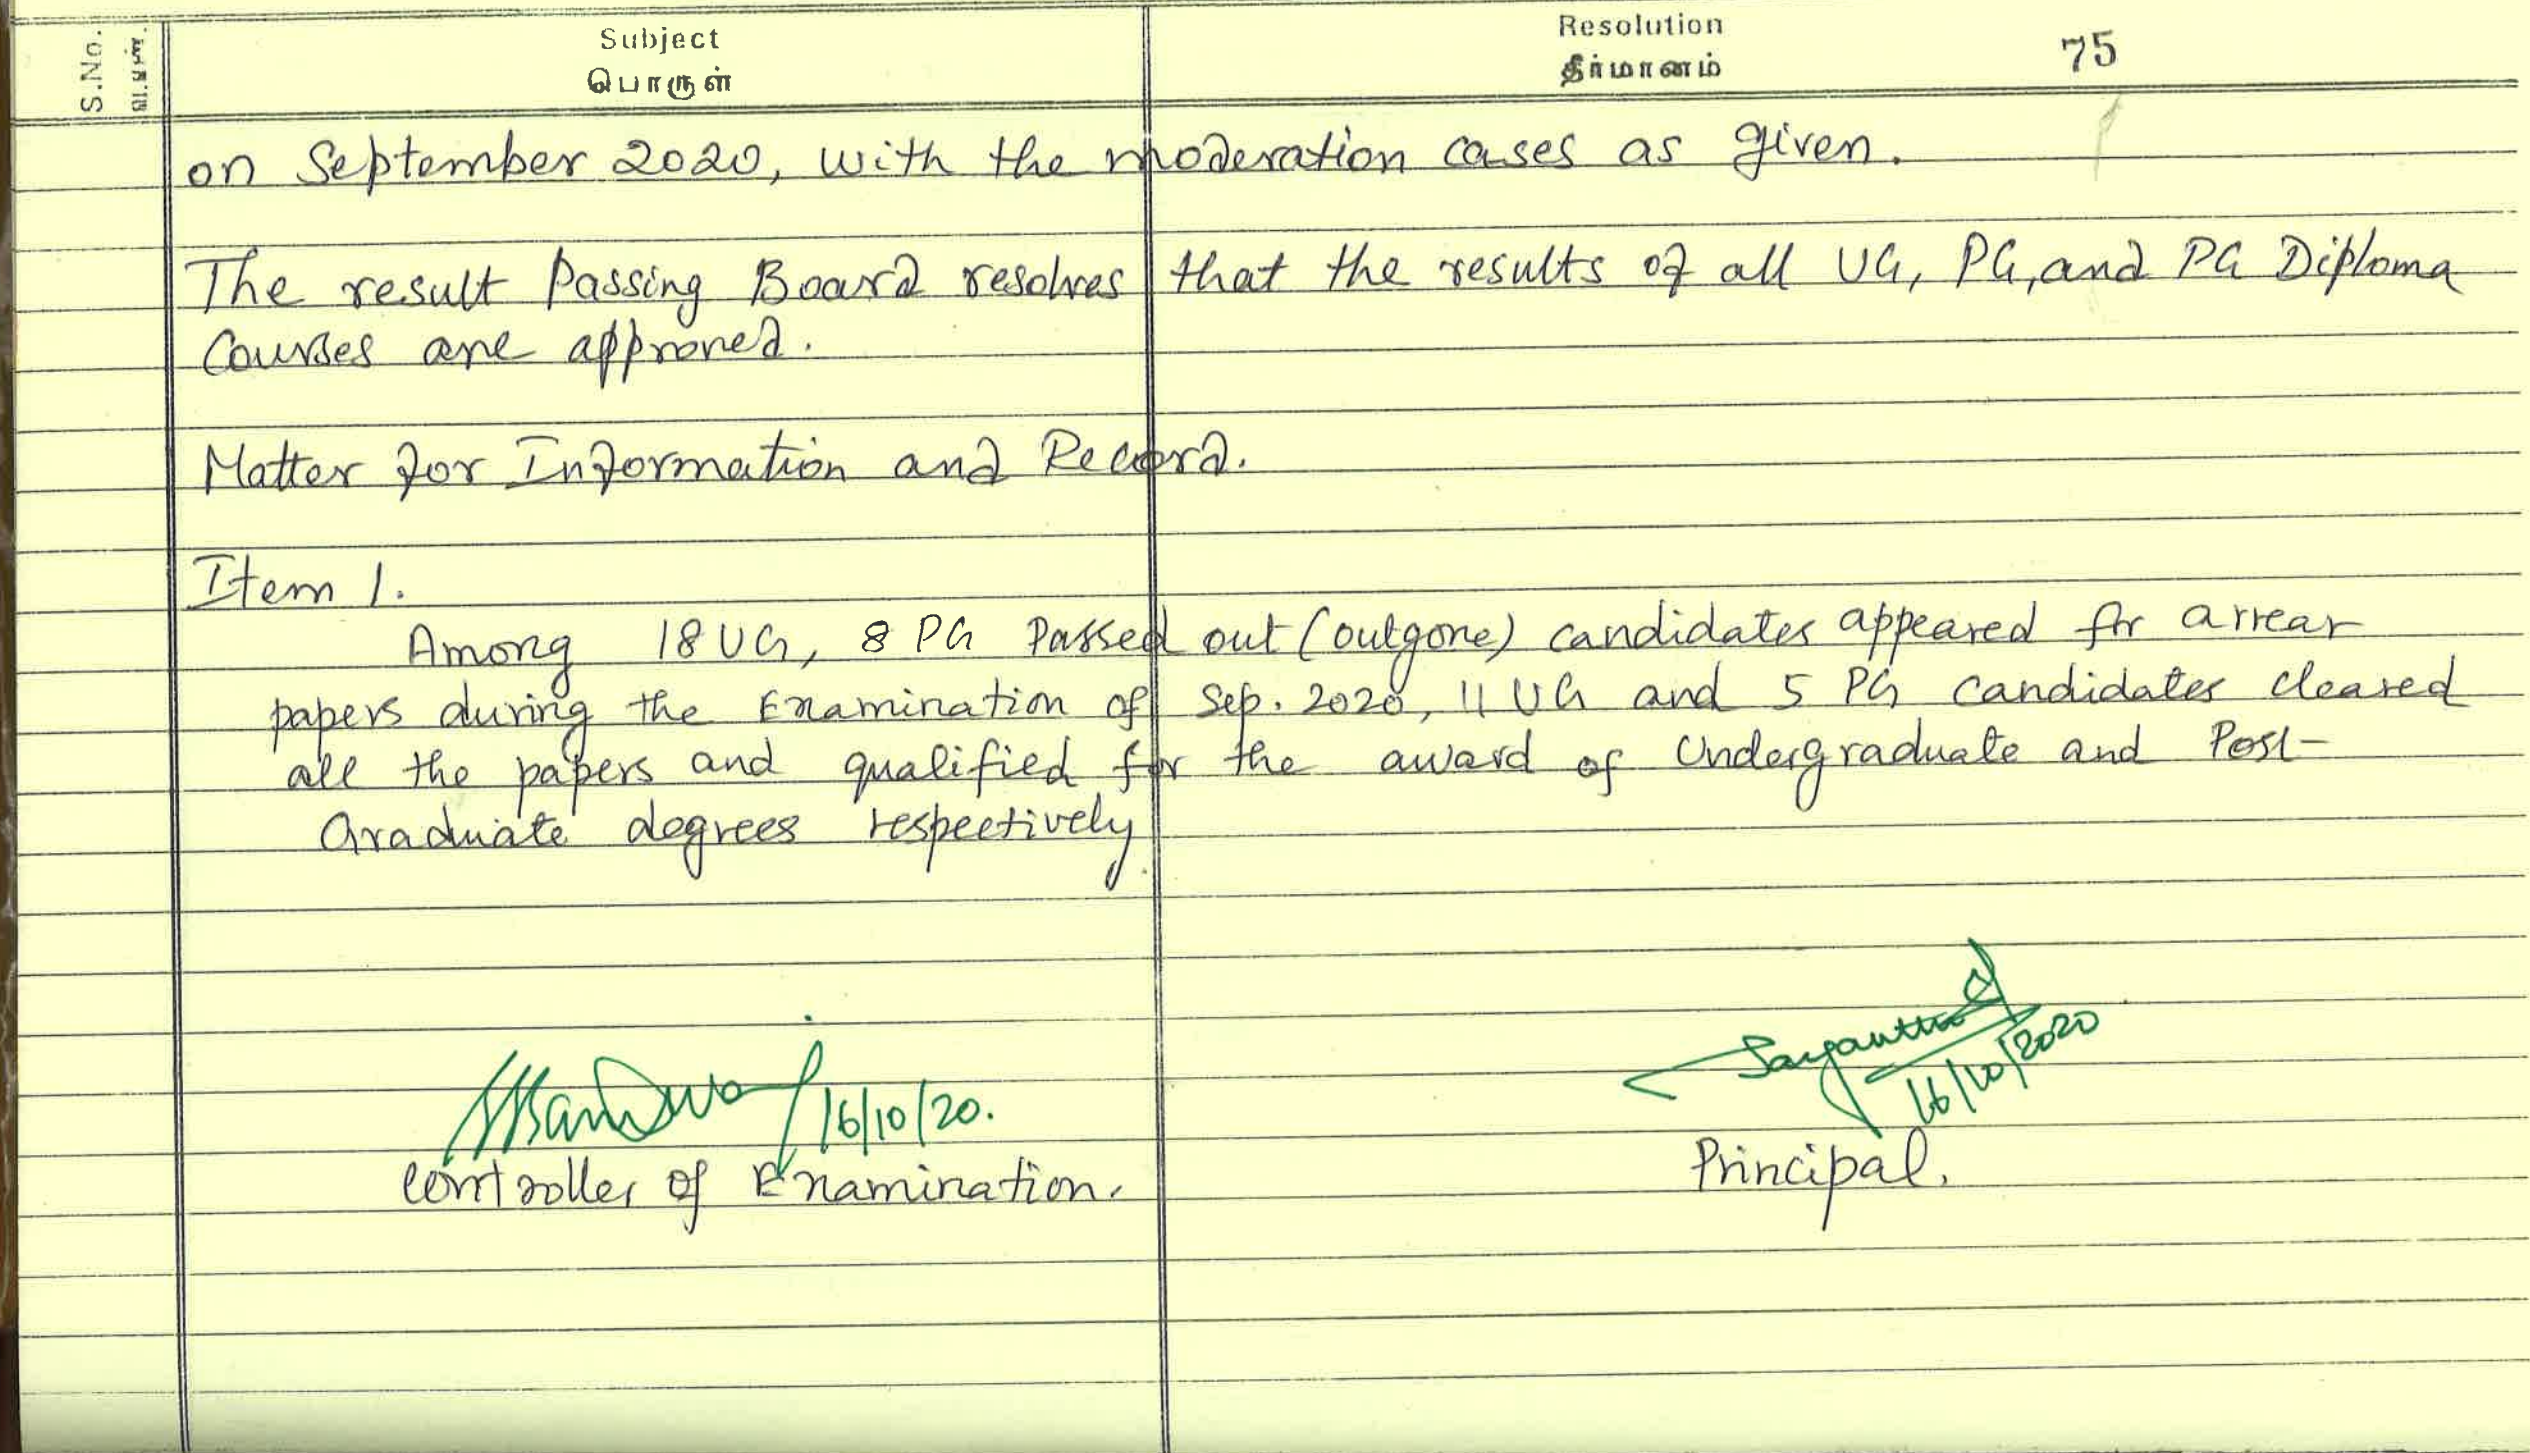 S.No.
Subject
பொருள்
Resolution
தீர்மானம்
75
on September 2020, with the moderation cases as given.
The result Passing Board resolves that the results of all UG, PG, and PG Diploma
Courses are approved.
Matter for Information and Record.
Item 1.
Among 18 UG, 8 PG Passed out (outgone) candidates appeared for arrear
papers during the Examination of Sep. 2020, 11 UG and 5 PG candidates cleared
all the papers and qualified for the award of Undergraduate and Post-
Graduate degrees respectively.
16/10/20.
16/10/2020
Controller of Examination.
Principal.